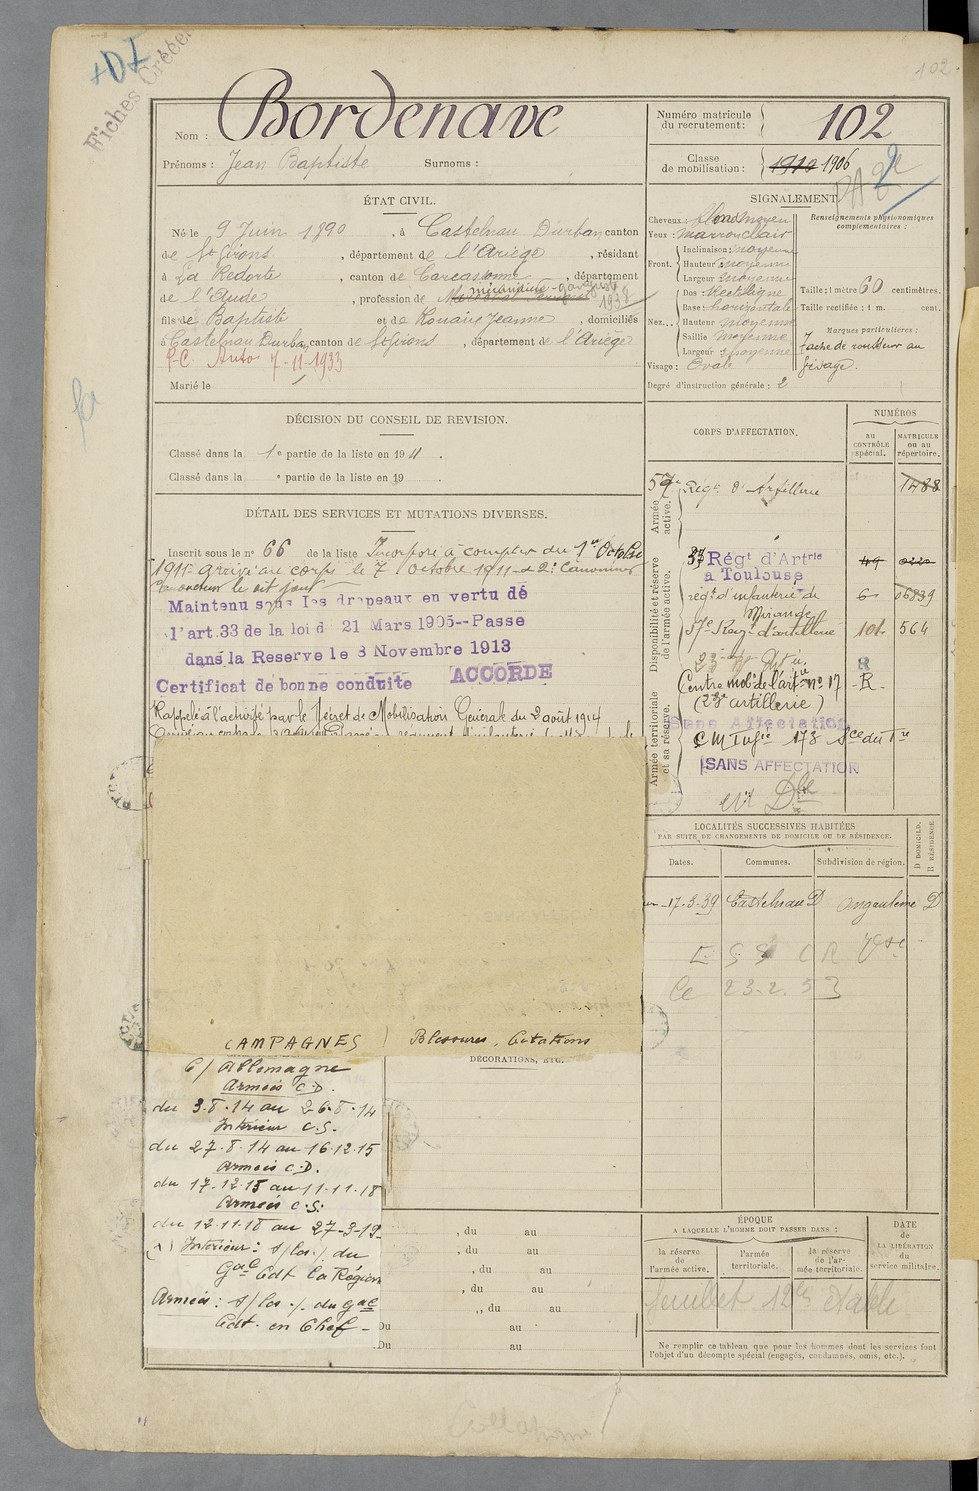 102
+DZ
Fiches Créées
Nom : Bordenave
Prénoms : Jean Baptiste Surnoms :
Numéro matricule
du recrutement: 102
Classe
de mobilisation : 1910 1906
ÉTAT CIVIL.
Né le 9 Juin 1890 , à Castelnau Durban canton
de St Girons , département de l'Ariège , résidant
à La Redorte , canton de Carcassonne , département
de l'Aude , profession de mécanicien-garagiste
1938
fils de Baptiste et de Rouaix Jeanne , domiciliés
à Castelnau Durban, canton de St Girons , département de l'Ariège
P.C. Autos 7-11-1933
Marié le
SIGNALEMENT.
Cheveux : blond moyen
Yeux : marron clair
Front. Inclinaison: moyenne
Hauteur : moyenne
Largeur : moyenne
Nez... Dos : Rectiligne
Base : horizontale
Hauteur moyenne
Saillie moyenne
Largeur : moyenne
Visage : Ovale
Degré d'instruction générale : 2
Renseignements physionomiques
complémentaires :
Taille : 1 mètre 60 centimètres.
Taille rectifiée : 1 m. cent.
Marques particulières :
tache de rousseur au
visage.
DÉCISION DU CONSEIL DE REVISION.
Classé dans la 1e partie de la liste en 1911 .
Classé dans la e partie de la liste en 19 .
DÉTAIL DES SERVICES ET MUTATIONS DIVERSES.
Inscrit sous le no 66 de la liste Incorporé à compter du 1er Octobre
1911 arrivé au corps le 7 Octobre 1911 et 2e Canonnier
le dit jour
Maintenu sous les drapeaux en vertu de
l'art.33 de la loi d 21 Mars 1905--Passe
dans la Reserve le 8 Novembre 1913
Certificat de bonne conduite ACCORDE
Rappelé à l'activité par le Décret de Mobilisation Générale du 2 août 1914
CORPS D'AFFECTATION.
NUMÉROS
AU
CONTRÔLE
spécial.
MATRICULE
ou au
répertoire.
Armée
active.
57e Régt d'Artillerie 1488
Disponibilité et réserve
de l'armée active.
Régt d'Artrie
a Toulouse
régt d'infanterie de 6 06839
Mirande
57e Régt d'artillerie 101 564
Armée territoriale
et sa réserve.
Centre mobr de l'artie no 17 -R-
(23e artillerie)
Sans Affectation
CM Infie 173
SANS AFFECTATION
LOCALITÉS SUCCESSIVES HABITÉES
PAR SUITE DE CHANGEMENTS DE DOMICILE OU DE RÉSIDENCE.
Dates. Communes. Subdivision de région.
D DOMICILE.
R RÉSIDENCE
17-3-39 Castelnau D Angoulême D
E S S C R
Le 23-2.53
CAMPAGNES Blessures, Citations
DÉCORATIONS, ETC.
C/ Allemagne
Armées C.D.
du 3.8.14 au 26.8.14
Intérieur C.S.
du 27.8.14 au 16.12.15
Armées C.D.
du 17.12.15 au 11.11.18
Armées C.S.
du 12.11.18 au 27-3-19
(1) Intérieur : s/les /. du
Gal Cdt la Région
Armées : s/les /. du Gal
Cdt. en Chef -
, du au
, du au
, du au
, du au
,, du au
Du au
Du au
ÉPOQUE
A LAQUELLE L'HOMME DOIT PASSER DANS :
la réserve
de
l'armée active.
l'armée
territoriale.
la réserve
de l'ar-
mée territoriale.
DATE
de
LA LIBÉRATION
du
service militaire.
Feuillet 12 établi
Ne remplir ce tableau que pour les hommes dont les services font
l'objet d'un décompte spécial (engagés, condamnés, omis, etc.).